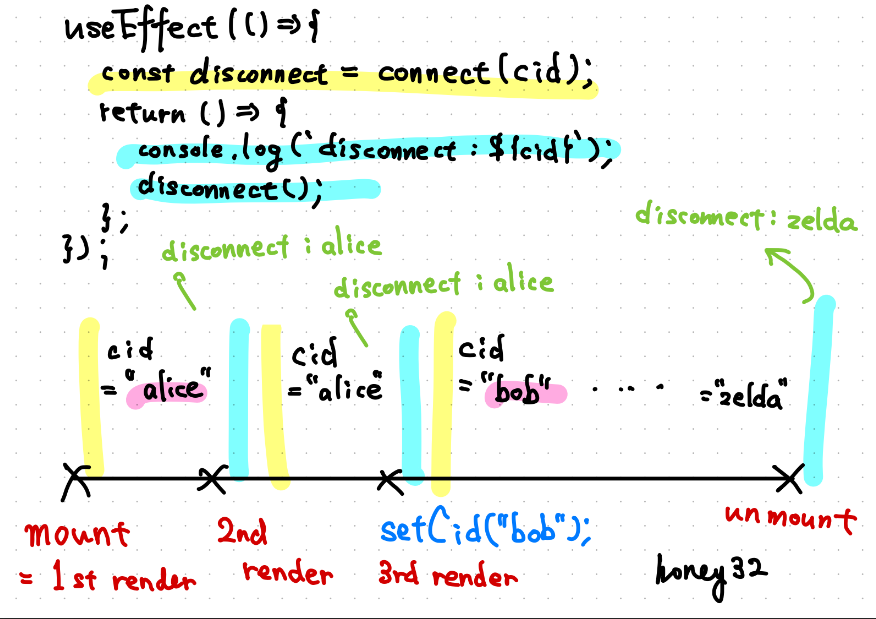 useEffect(() => {
const disconnect = connect(cid);
return () => {
console.log(`disconnect : ${cid}`);
disconnect();
};
});
disconnect : alice
disconnect : alice
disconnect : zelda
cid
= "alice"
cid
= "alice"
cid
= "bob"
. ... .
= "zelda"
mount
= 1st render
2nd
render
setCid("bob");
3rd render
unmount
honey32